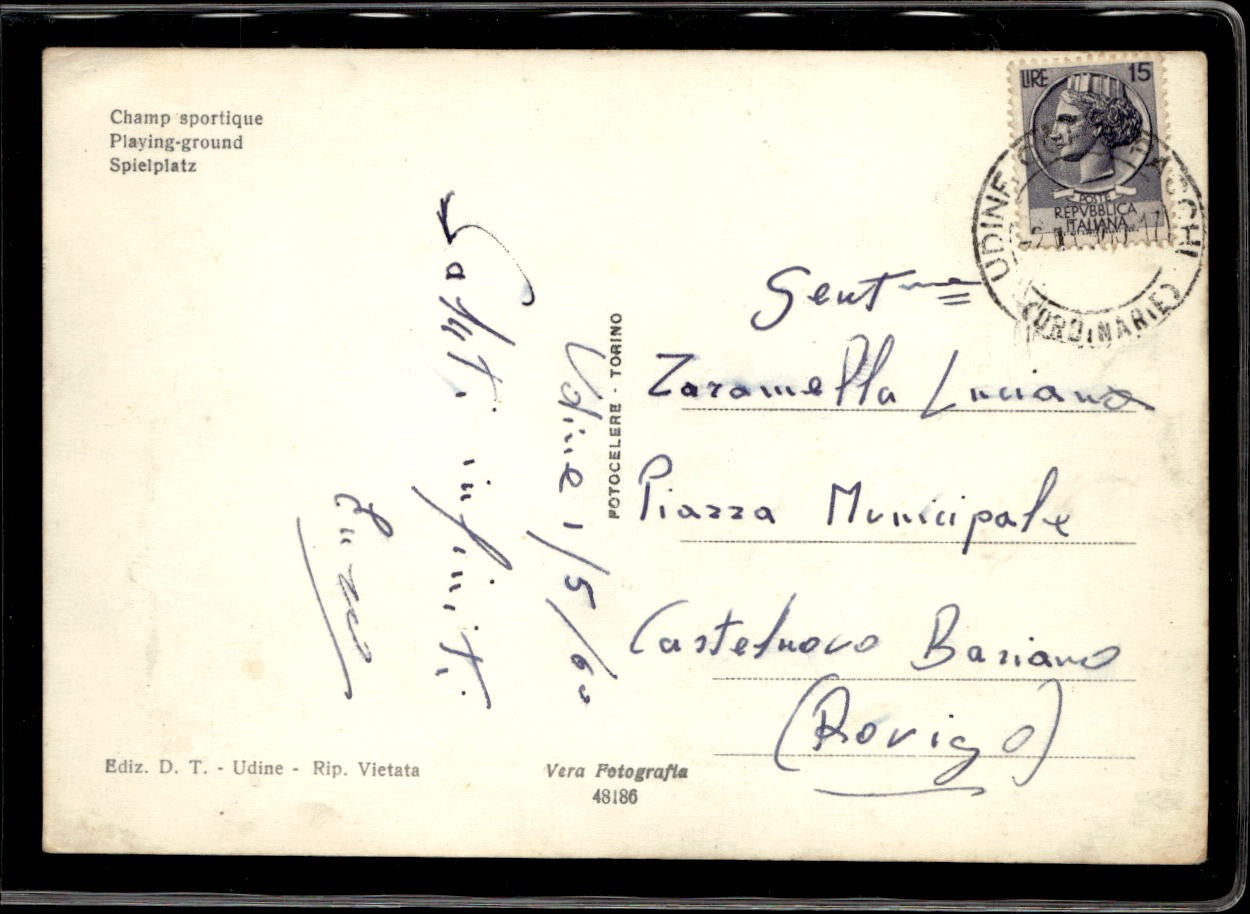 Champ sportique
Playing-ground
Spielplatz
LIRE 15
POSTE
REPVBBLICA
ITALIANA
UDINE PACCHI
(ORDINARIE)
Udine 1/5/60
Saluti infiniti
FOTOCELERE - TORINO
Gent
Zaramella Luciano
Piazza Municipale
Castelnovo Bariano
(Rovigo)
Ediz. D. T. - Udine - Rip. Vietata
Vera Fotografia
48186